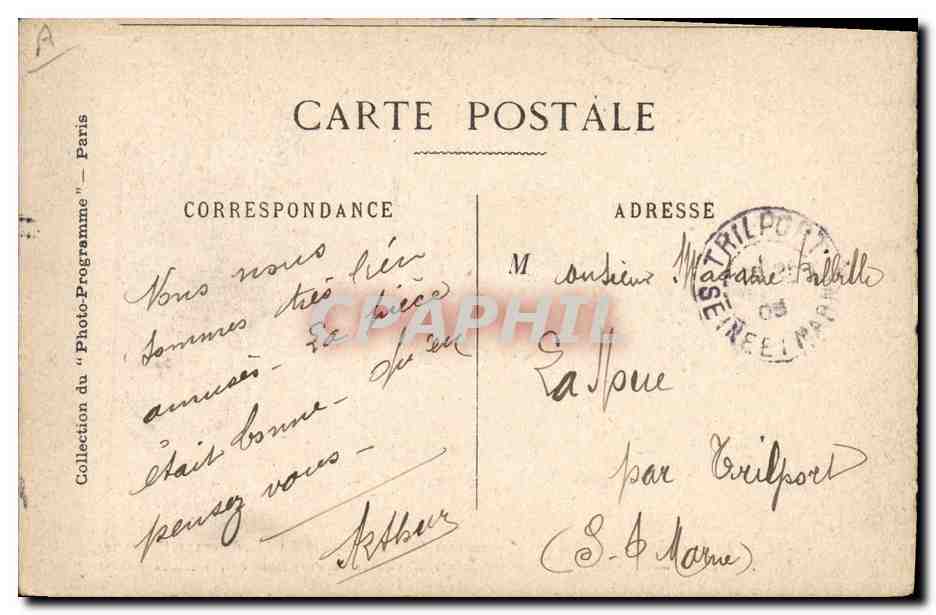 A
CARTE POSTALE
Collection du "Photo-Programme" — Paris
CORRESPONDANCE
Nous nous
sommes très bien
amusés - La pièce
était bonne - Qu'en
pensez vous -
Arthur
ADRESSE
Monsieur Madame
par Trilport
(S. & Marne)
TRILPORT
SEINE ET MARNE
05
CPAPHIL